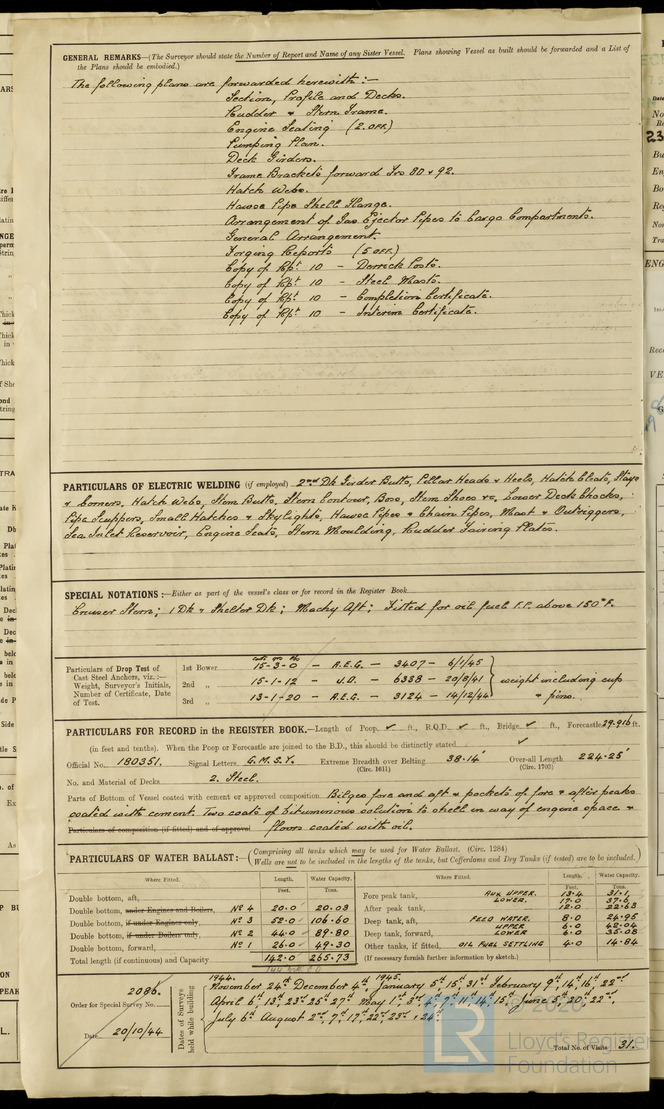 GENERAL REMARKS—(The Surveyor should state the Number of Report and Name of any Sister Vessel. Plans showing Vessel as built should be forwarded and a List of
the Plans should be embodied.)
The following plans are forwarded herewith :-
Section, Profile and Decks.
Rudder & Stern Frame.
Engine Seating (2 OFF)
Pumping Plan.
Deck Girders.
Frame Brackets forward Frs 80 & 92.
Hatch Webs.
Hawse Pipe Shell Flange.
Arrangement of Gas Ejector Pipes to Cargo Compartments.
General Arrangement.
Forging Reports (5 OFF)
Copy of Rpt. 10 - Derrick Posts.
Copy of Rpt. 10 - Steel Masts.
Copy of Rpt. 10 - Completion Certificate.
Copy of Rpt. 10 - Interim Certificate.
PARTICULARS OF ELECTRIC WELDING (if employed) 2nd Dk Girder Butts, Pillar Heads & Heels, Hatch Cleats, Stays
& Corners, Hatch Webs, Stem Butts, Stern Contour, Boss, Stem Shoes &c, Lower Deck Chocks,
Pipe Scuppers, Small Hatches & Skylights, Hawse Pipes & Chain Pipes, Mast & Outriggers,
Sea Inlet Reservoir, Engine Seats, Stern Moulding, Rudder Fairing Plates.
SPECIAL NOTATIONS :—Either as part of the vessel's class or for record in the Register Book
Cruiser Stern; 1 Dk & Shelter Dk; Machy Aft; Fitted for oil fuel F.P. above 150°F.
Particulars of Drop Test of
Cast Steel Anchors, viz. :—
Weight, Surveyor's Initials,
Number of Certificate, Date
of Test.
1st Bower 15-3-0 - A.E.G. - 3407 - 6/1/45
2nd „ 15-1-12 - J.D. - 6338 - 20/8/41
3rd „ 13-1-20 - A.E.G. - 3124 - 14/12/44
weight including cup
& pins.
PARTICULARS FOR RECORD in the REGISTER BOOK.—Length of Poop ✓ ft., R.Q.D. ✓ ft., Bridge ✓ ft., Forecastle 29.916 ft.
(in feet and tenths). When the Poop or Forecastle are joined to the B.D., this should be distinctly stated ✓
Official No. 180351. Signal Letters G.M.S.Y. Extreme Breadth over Belting 38.14' Over-all Length 224.25'
(Circ. 1611) (Circ. 1703)
No. and Material of Decks 2. Steel.
Parts of Bottom of Vessel coated with cement or approved composition Bilges fore and aft & pockets of fore & after peaks
coated with cement. Two coats of bituminous solution to shell in way of engine space &
Particulars of composition (if fitted) and if approved floors coated with oil.
PARTICULARS OF WATER BALLAST:—(Comprising all tanks which may be used for Water Ballast. (Circ. 1284)
Wells are not to be included in the lengths of the tanks, but Cofferdams and Dry Tanks (if tested) are to be included.)
Where Fitted. Length. Water Capacity. Where Fitted. Length. Water Capacity.
Feet. Tons. Feet. Tons.
Double bottom, aft,
Double bottom, under Engines and Boilers, No 4 20.0 20.03
Double bottom, if under Engines only, No 3 52.0 106.60
Double bottom, if under Boilers only, No 2 44.0 89.80
Double bottom, forward, No 1 26.0 49.30
Total length (if continuous) and Capacity 142.0 265.73
Fore peak tank, AUX UPPER. 13.4 31.1
LOWER. 17.0 37.6
After peak tank, 12.0 22.63
Deep tank, aft, FEED WATER. 8.0 24.95
Deep tank, forward, UPPER 6.0 42.04
LOWER 6.0 35.08
Other tanks, if fitted, OIL FUEL SETTLING 4.0 14.84
(If necessary furnish further information by sketch).
Order for Special Survey No. 2086.
Date 20/10/44
Dates of Surveys held while building
1944. 1945.
November 24th December 4th, January 5th, 15th, 31st February 9th, 14th, 16th, 22nd
April 6th, 13th, 23rd, 25th, 27th May 1st, 3rd, 4th, 7th, 11th, 14th, 15th June 5th, 20th, 22nd,
July 6th August 2nd, 7th, 17th, 22nd, 23rd & 24th.
Total No. of Visits 31.
© 2020
LR
Lloyd's Register
Foundation